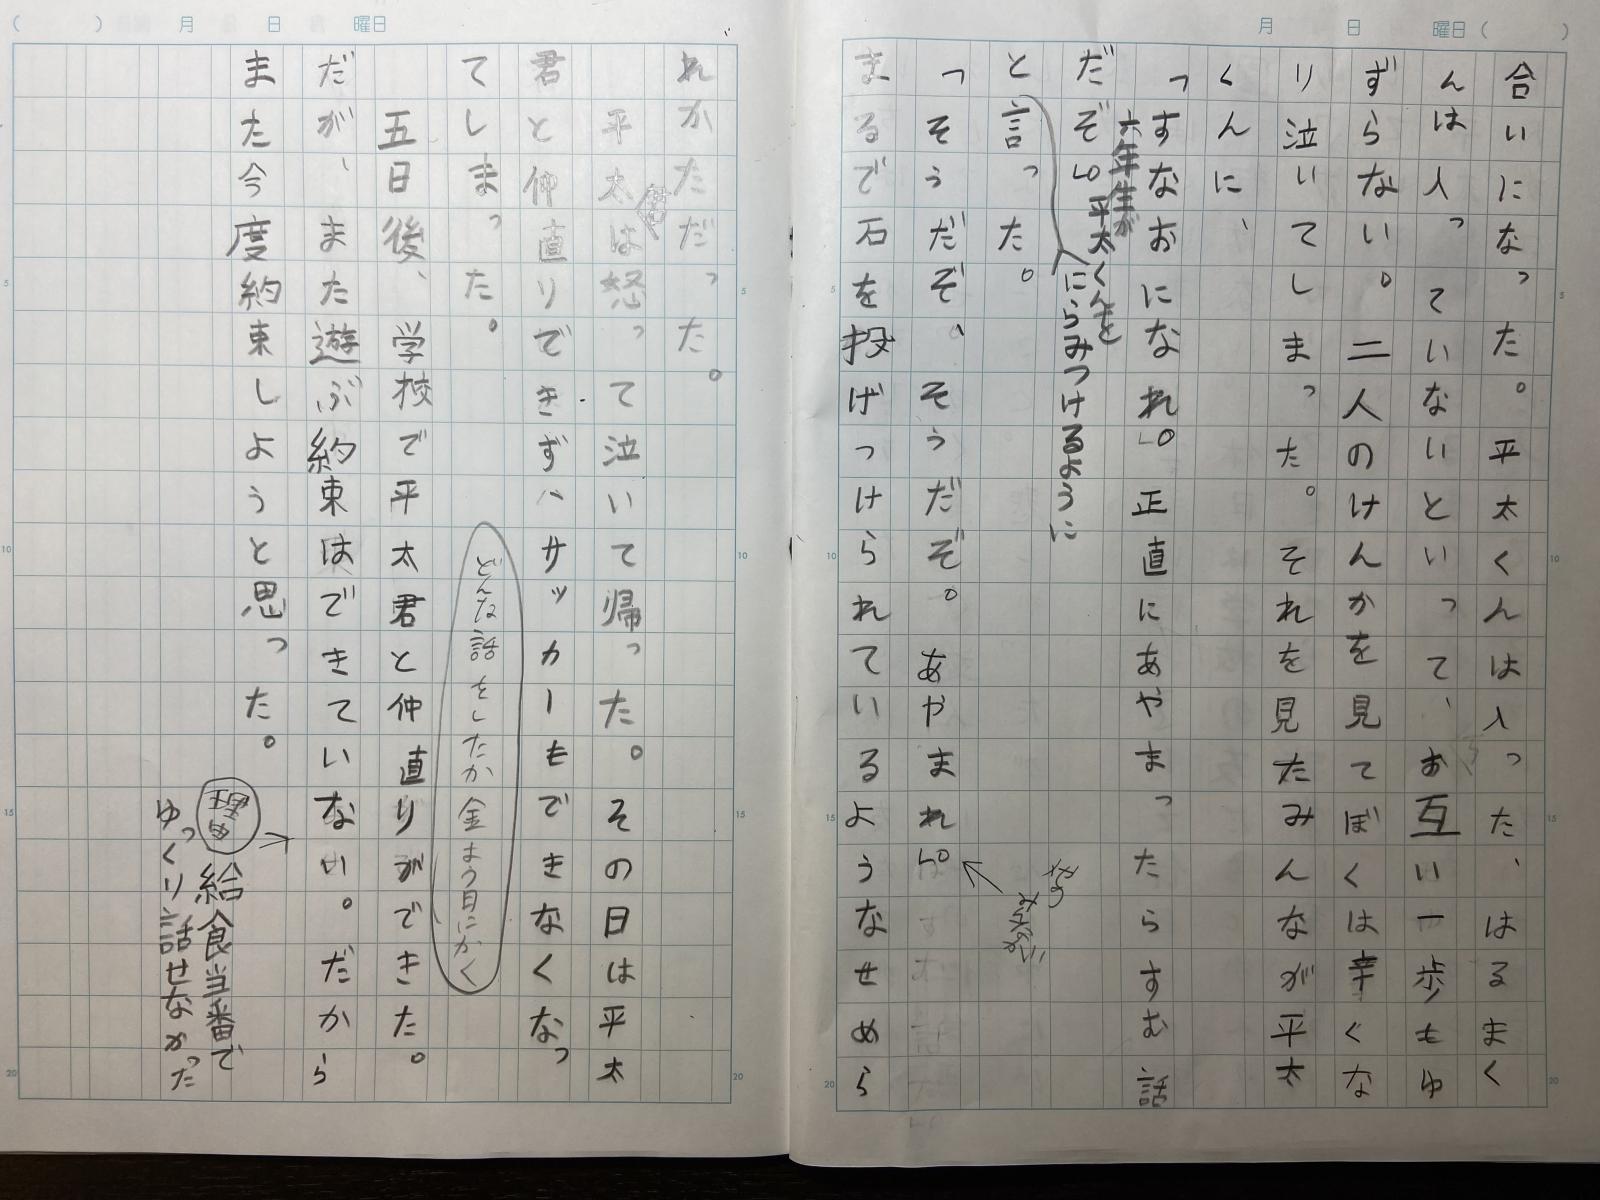 月 日 曜日( )
合いになった。平太くんは入った、はるまく
んは入っていないといって、お互い一歩もゆ
ずらない。二人のけんかを見てぼくは辛くな
り泣いてしまった。それを見たみんなが平太
くんに、
「すなおになれ。」正直にあやまったらすむ話
六年生が
だぞ。」平太くんを
にらみつけるように
と言った。
「そうだぞ、そうだぞ。あやまれ。」
まるで石を投げつけられているようなせめら
( ) 月 日 曜日
れかただった。
平太は怒って泣いて帰った。その日は平太
君と仲直りできずハサッカーもできなくなっ
てしまった。
どんな話をしたか金よう日にかく
五日後、学校で平太君と仲直りができた。
だが、また遊ぶ約束はできていない。だから
また今度約束しようと思った。
理由
給食当番で
ゆっくり話せなかった
5
10
15
20
5
10
15
20
5
10
15
20
5
10
15
20